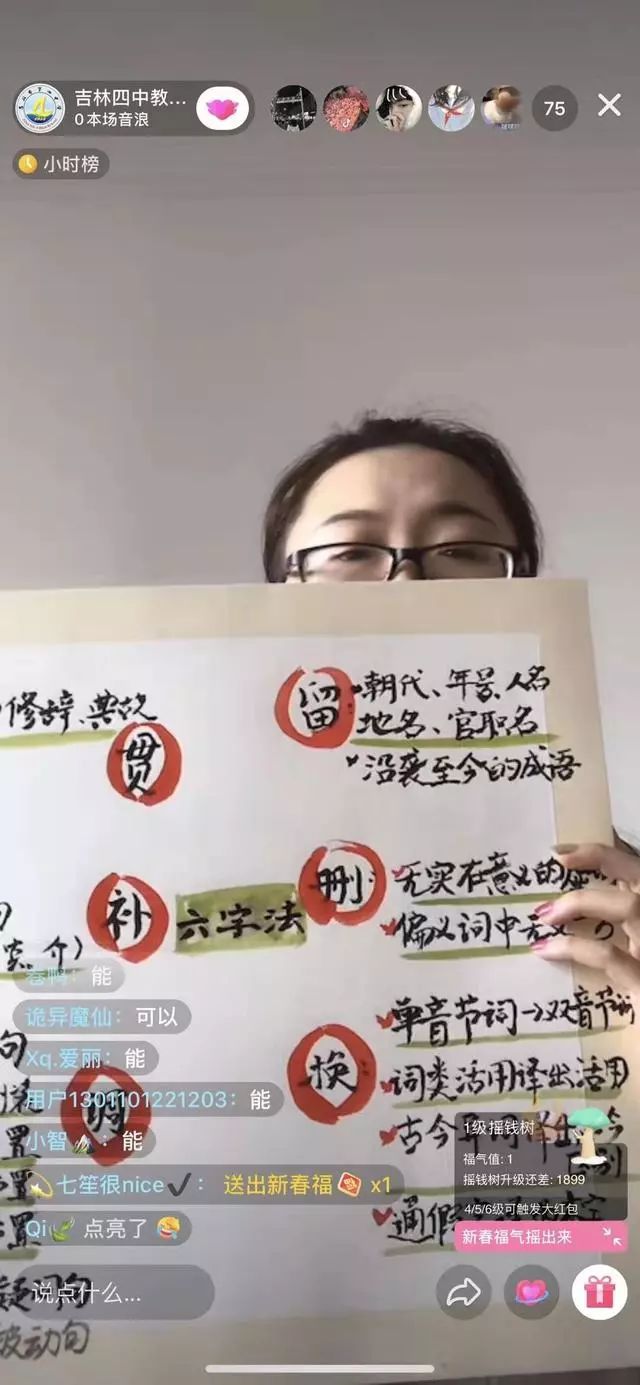 吉林四中教...
0本场音浪
75
小时榜
修辞、典故
贯
留
朝代、年号、人名
地名、官职名
沿袭至今的成语
补
六字法
删
无实在意义的
偏义词中无义
换
单音节词→双音节词
词类活用译出活用
古今异
通假
调
句
置
置
被动句
能
诡异魔仙：可以
Xq.爱丽：能
用户1301101221203：能
小智：能
七笙很nice✓：送出新春福 x1
Qi 点亮了
说点什么...
1级摇钱树
福气值: 1
摇钱树升级还差: 1899
4/5/6级可触发大红包
新春福气摇出来